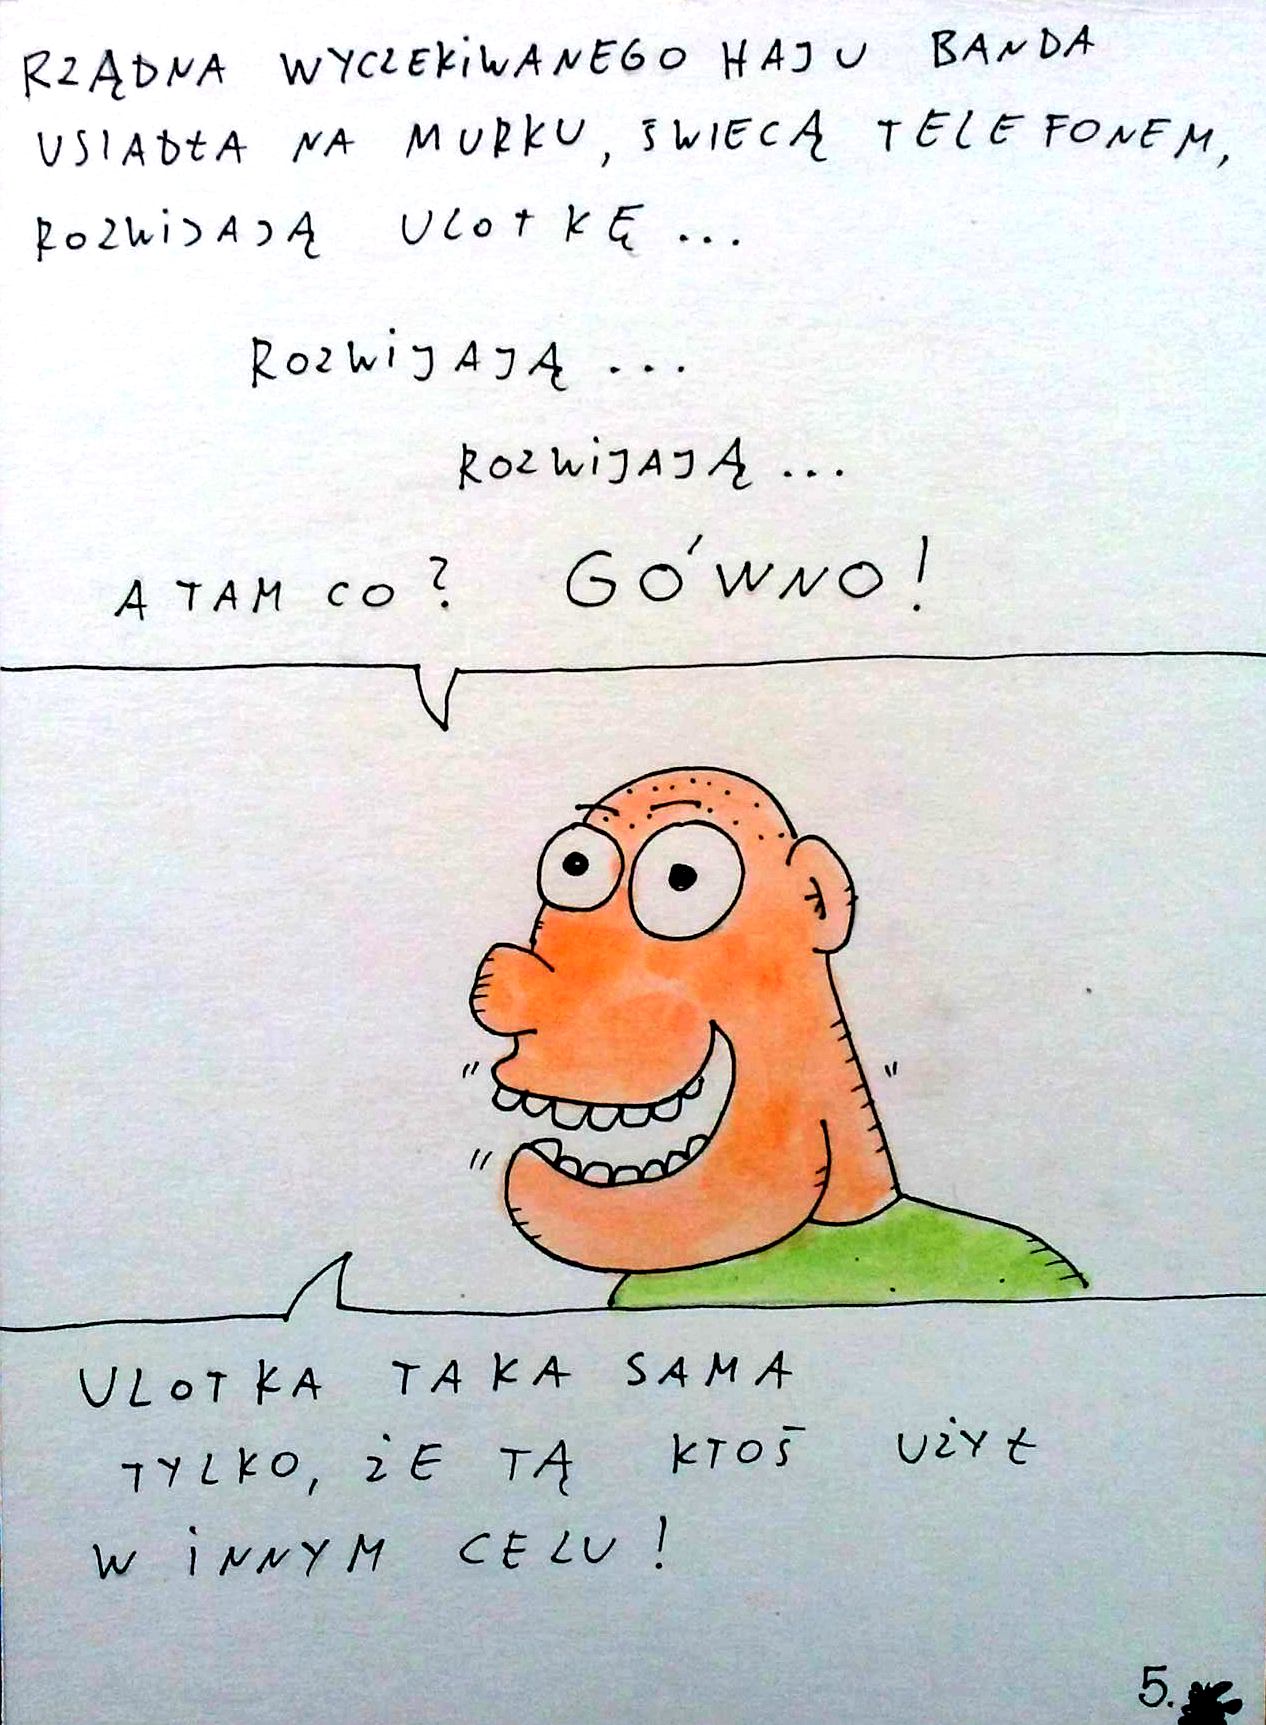 RZĄDNA WYCZEKIWANEGO HAJU BANDA
USIADŁA NA MURKU, ŚWIECĄ TELEFONEM,
ROZWIJAJĄ ULOTKĘ...
ROZWIJAJĄ...
ROZWIJAJĄ...
A TAM CO? GÓWNO!
ULOTKA TAKA SAMA
TYLKO, ŻE TĄ KTOŚ UŻYŁ
W INNYM CELU!
5.